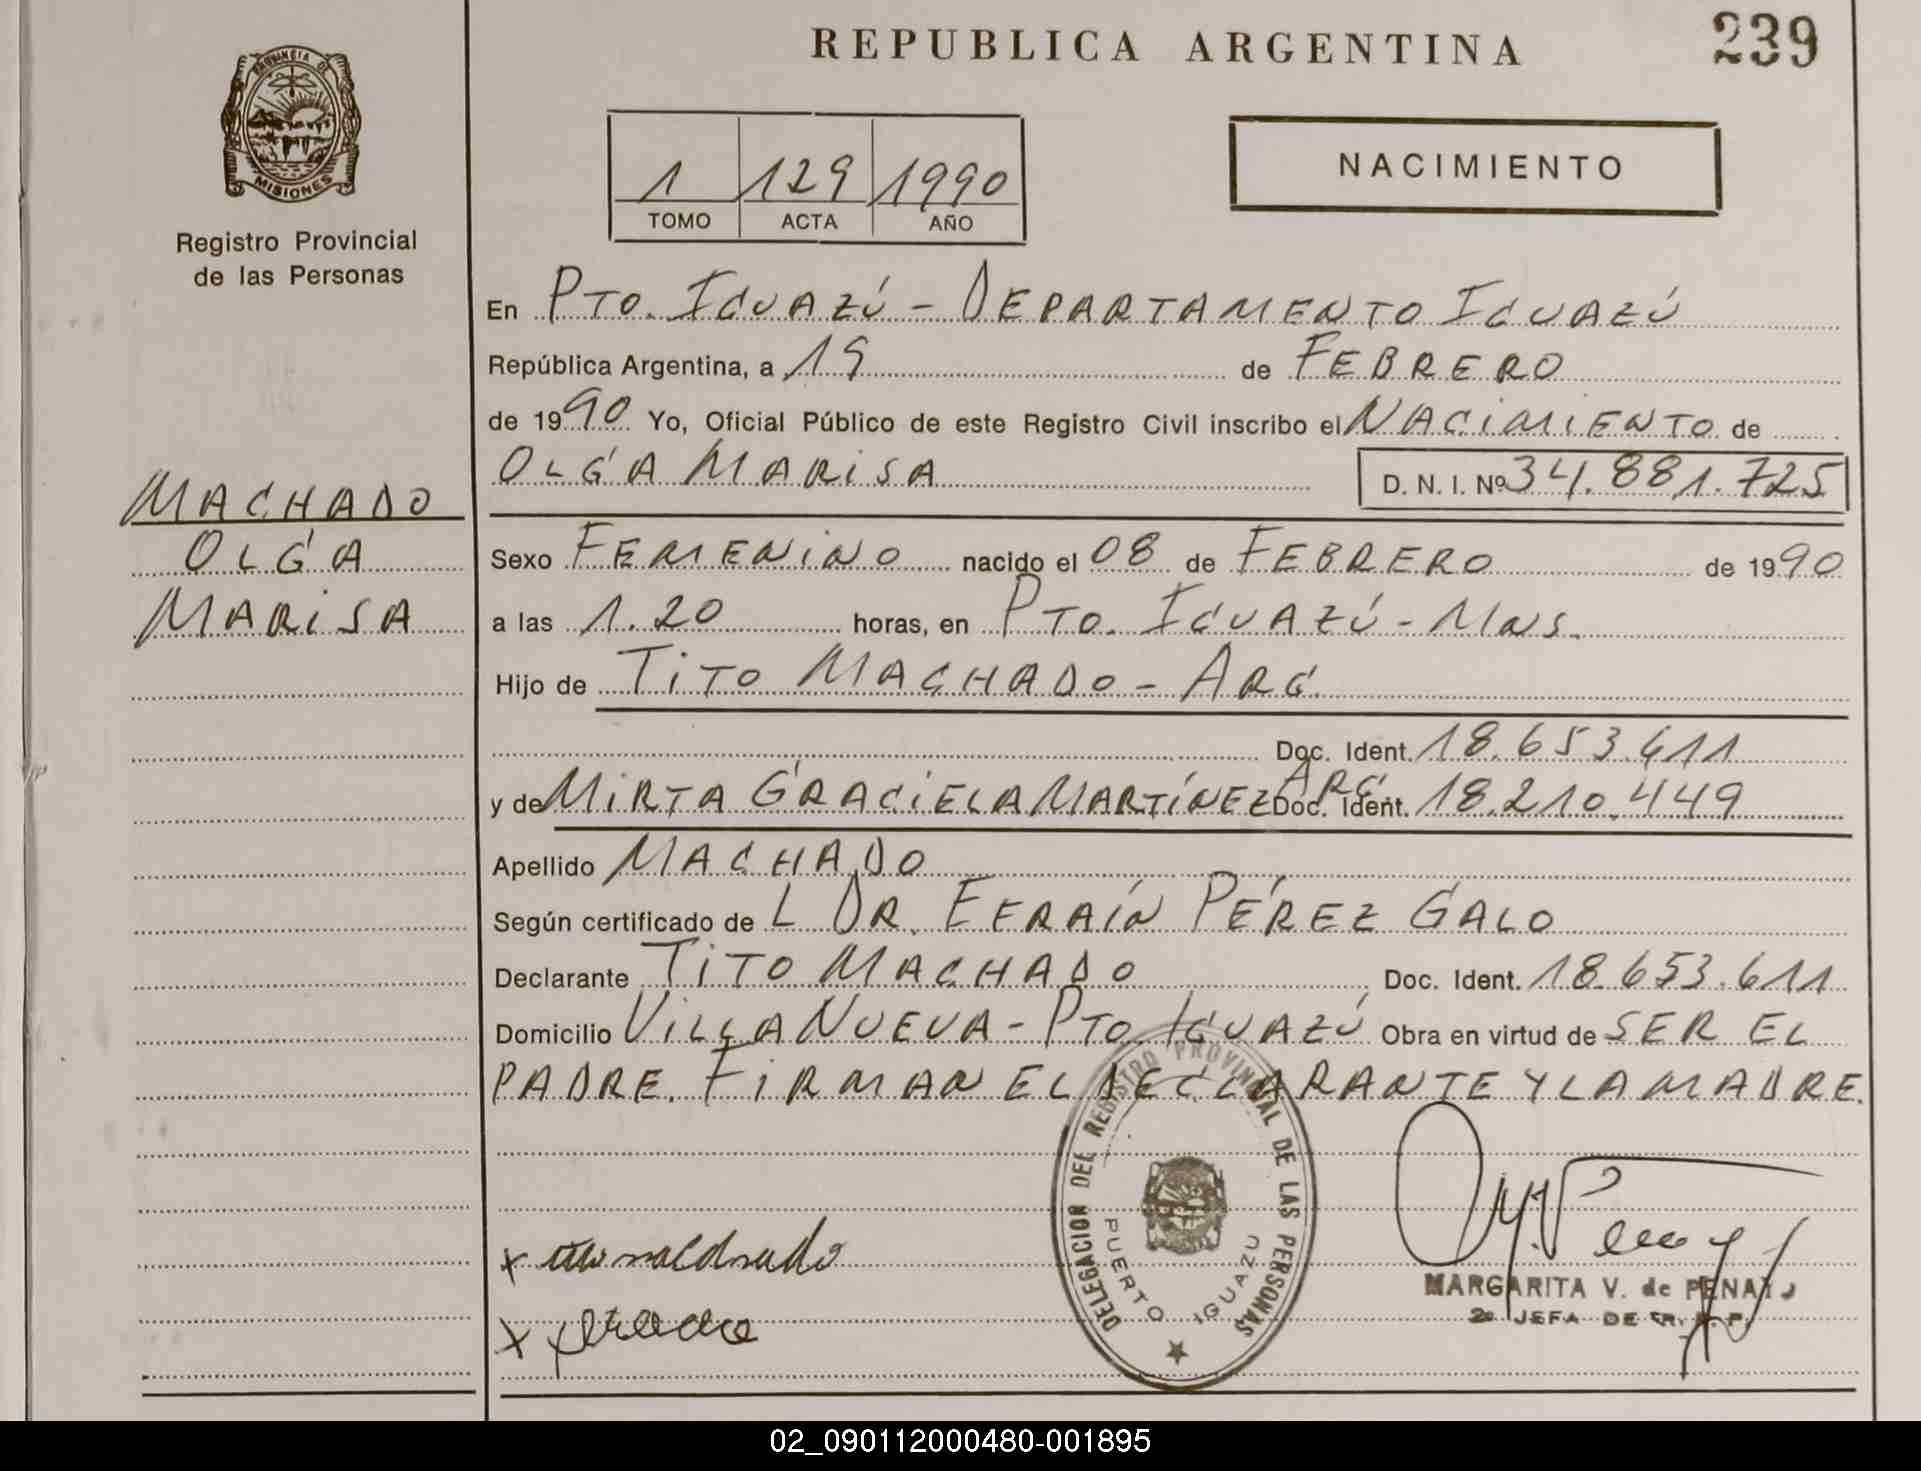 REPUBLICA ARGENTINA
239
PROVINCIA DE
MISIONES
Registro Provincial
de las Personas
1 129 1990
TOMO ACTA AÑO
NACIMIENTO
En PTO. IGUAZÚ - DEPARTAMENTO IGUAZÚ
República Argentina, a 19 de FEBRERO
de 1990 Yo, Oficial Público de este Registro Civil inscribo el NACIMIENTO de
OLGA MARISA D. N. I. Nº 34.881.725
MACHADO
OLGA
MARISA
Sexo FEMENINO nacido el 08 de FEBRERO de 1990
a las 1.20 horas, en PTO. IGUAZÚ - MNS.
Hijo de TITO MACHADO - ARG.
Doc. Ident. 18.653.611
y de MIRTA GRACIELA MARTÍNEZ ARG. Doc. Ident. 18.210.449
Apellido MACHADO
Según certificado de L DR. EFRAÍN PÉREZ GALO
Declarante TITO MACHADO Doc. Ident. 18.653.611
Domicilio VILLA NUEVA - PTO IGUAZÚ Obra en virtud de SER EL
PADRE. FIRMAN EL DECLARANTE Y LA MADRE.
DELEGACION DEL REGISTRO PROVINCIAL DE LAS PERSONAS
PUERTO IGUAZU
MARGARITA V. de
2a JEFA DE
02_090112000480-001895